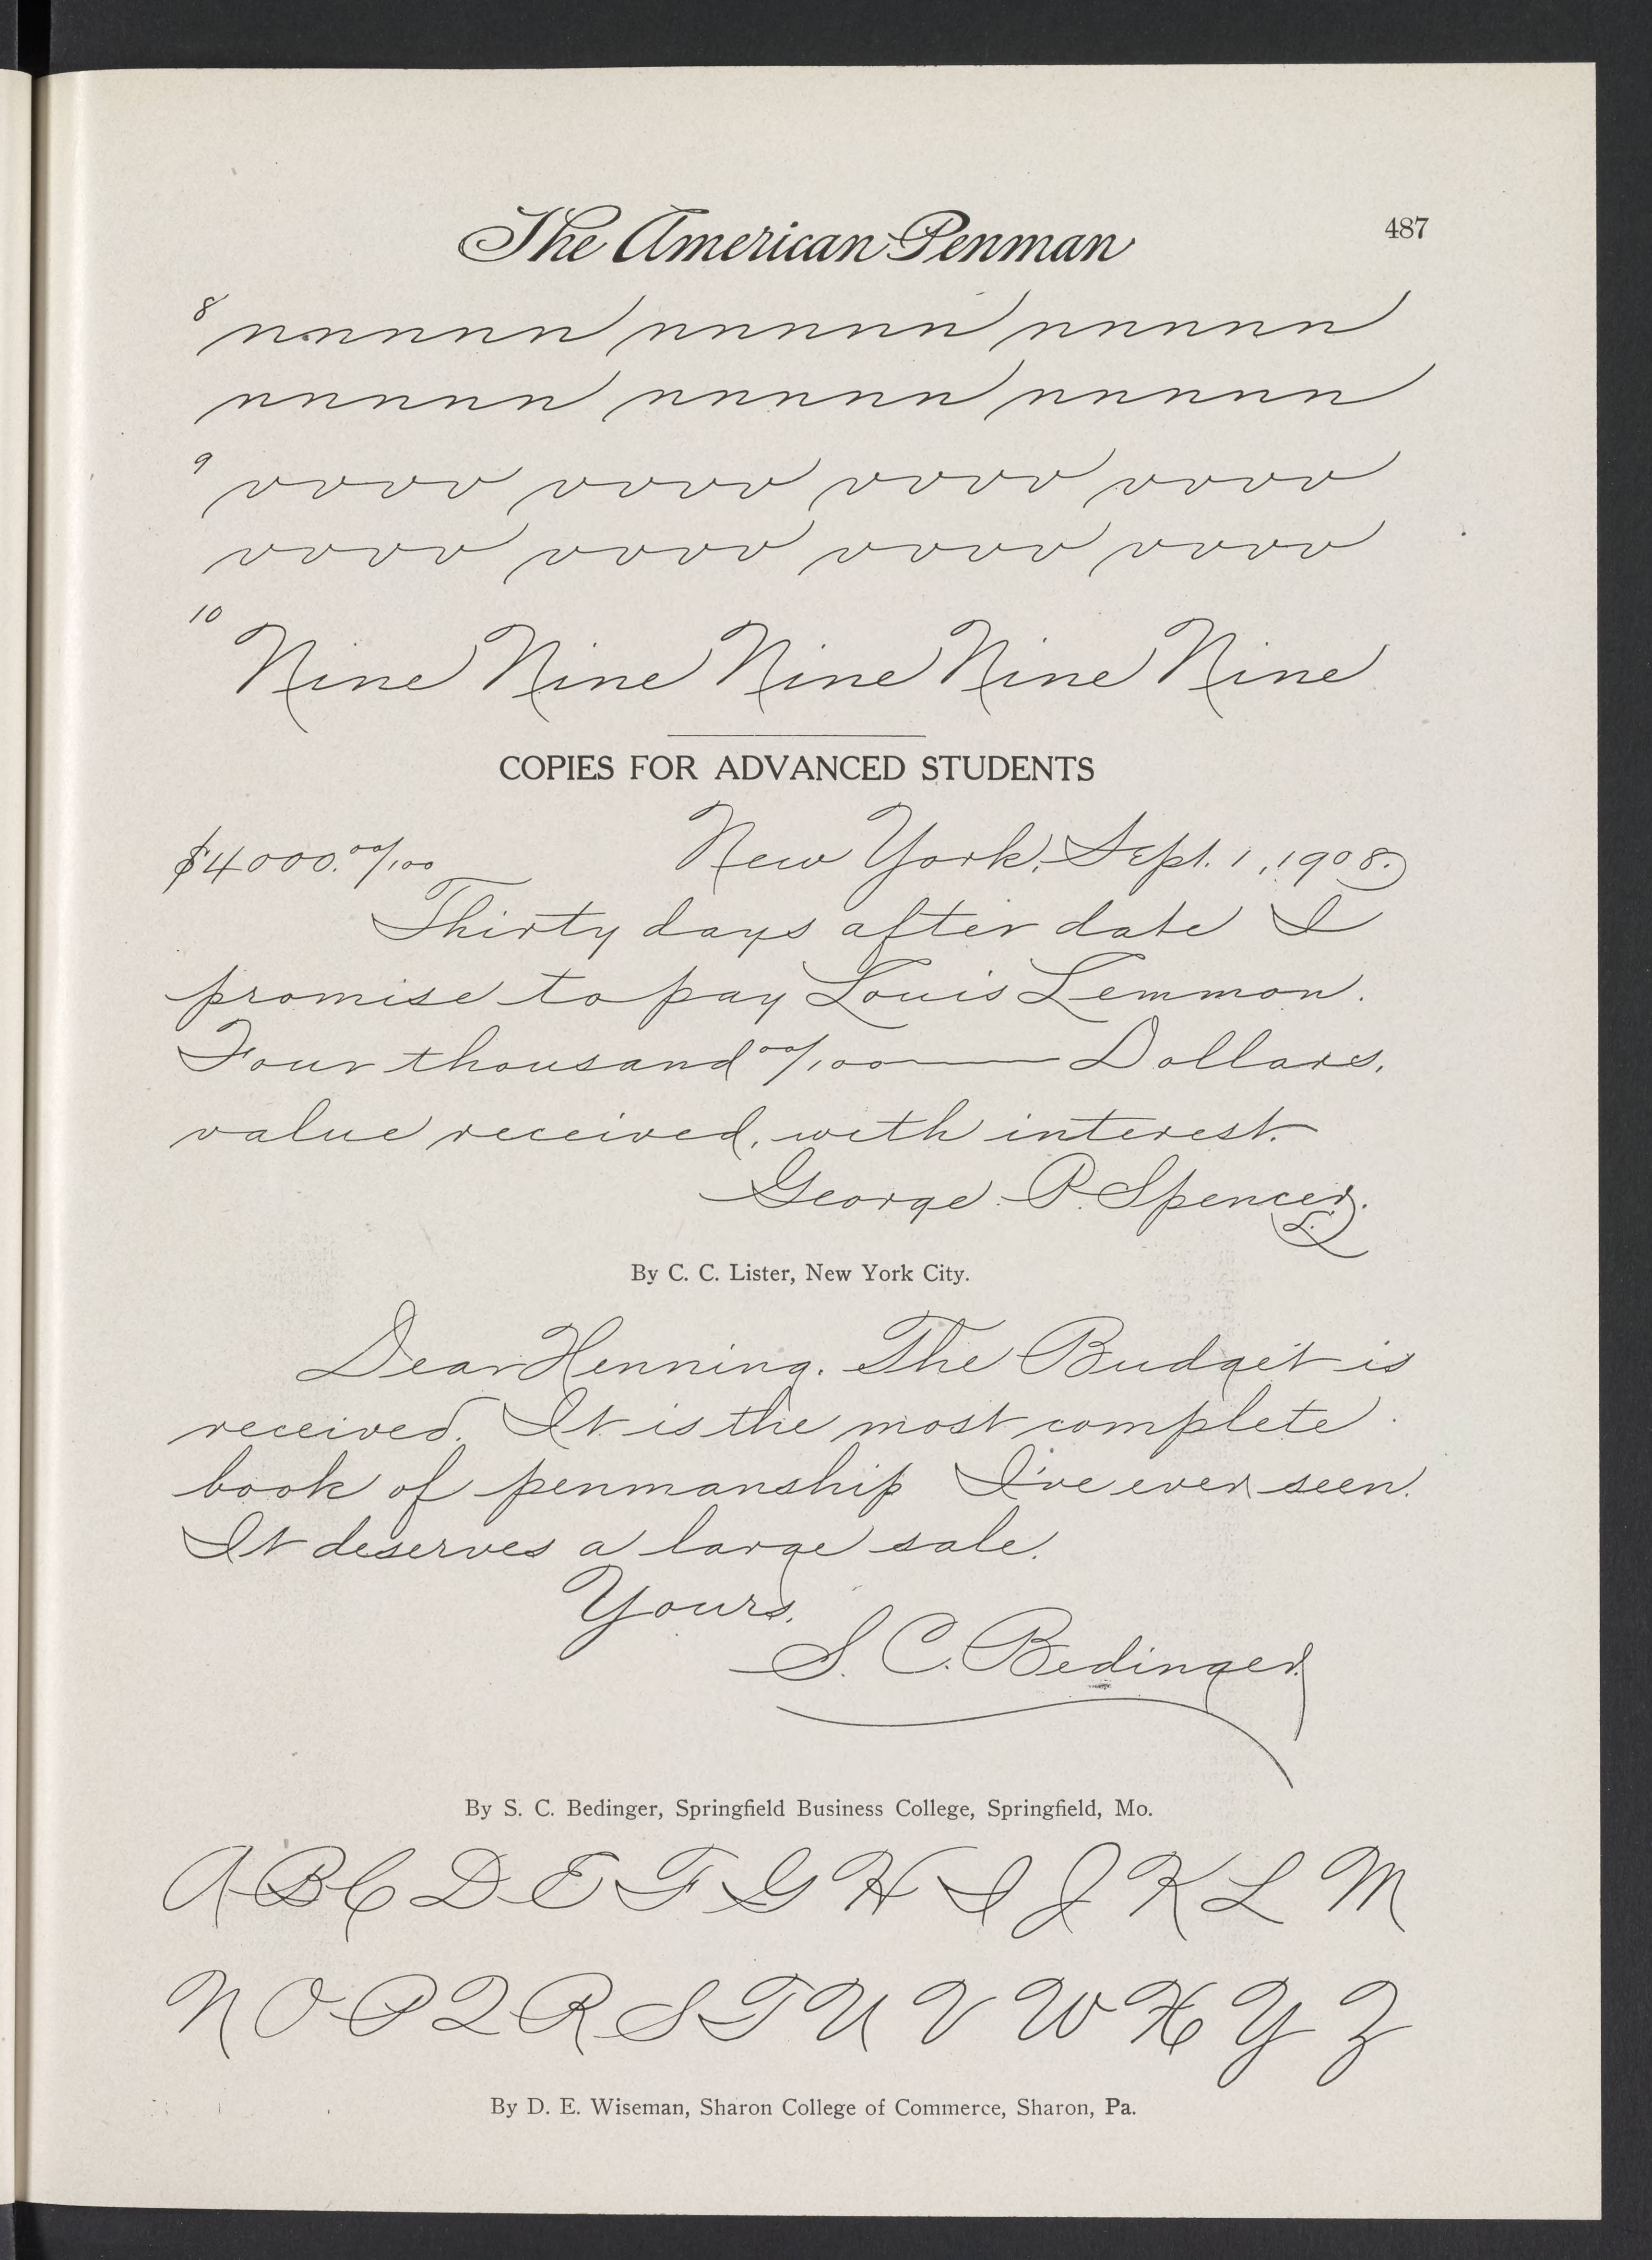 The American Penman
487
8
nnnnnn nnnnnn nnnnnn
nnnnnn nnnnnn nnnnnn
9
vvvv vvvv vvvv vvvv
vvvv vvvv vvvv vvvv
10
Nine Nine Nine Nine Nine
COPIES FOR ADVANCED STUDENTS
$4000.00/100 New York, Sept. 1, 1908.
Thirty days after date I
promise to pay Louis Lemmon.
Four thousand 00/100 Dollars,
value received, with interest.
George P. Spencer.
L.
By C. C. Lister, New York City.
Dear Henning. The Budget is
received. It is the most complete
book of penmanship I've ever seen.
It deserves a large sale.
Yours,
S. C. Bedinger.
By S. C. Bedinger, Springfield Business College, Springfield, Mo.
A B C D E F G H I J K L M
N O P Q R S T U V W X Y Z
By D. E. Wiseman, Sharon College of Commerce, Sharon, Pa.